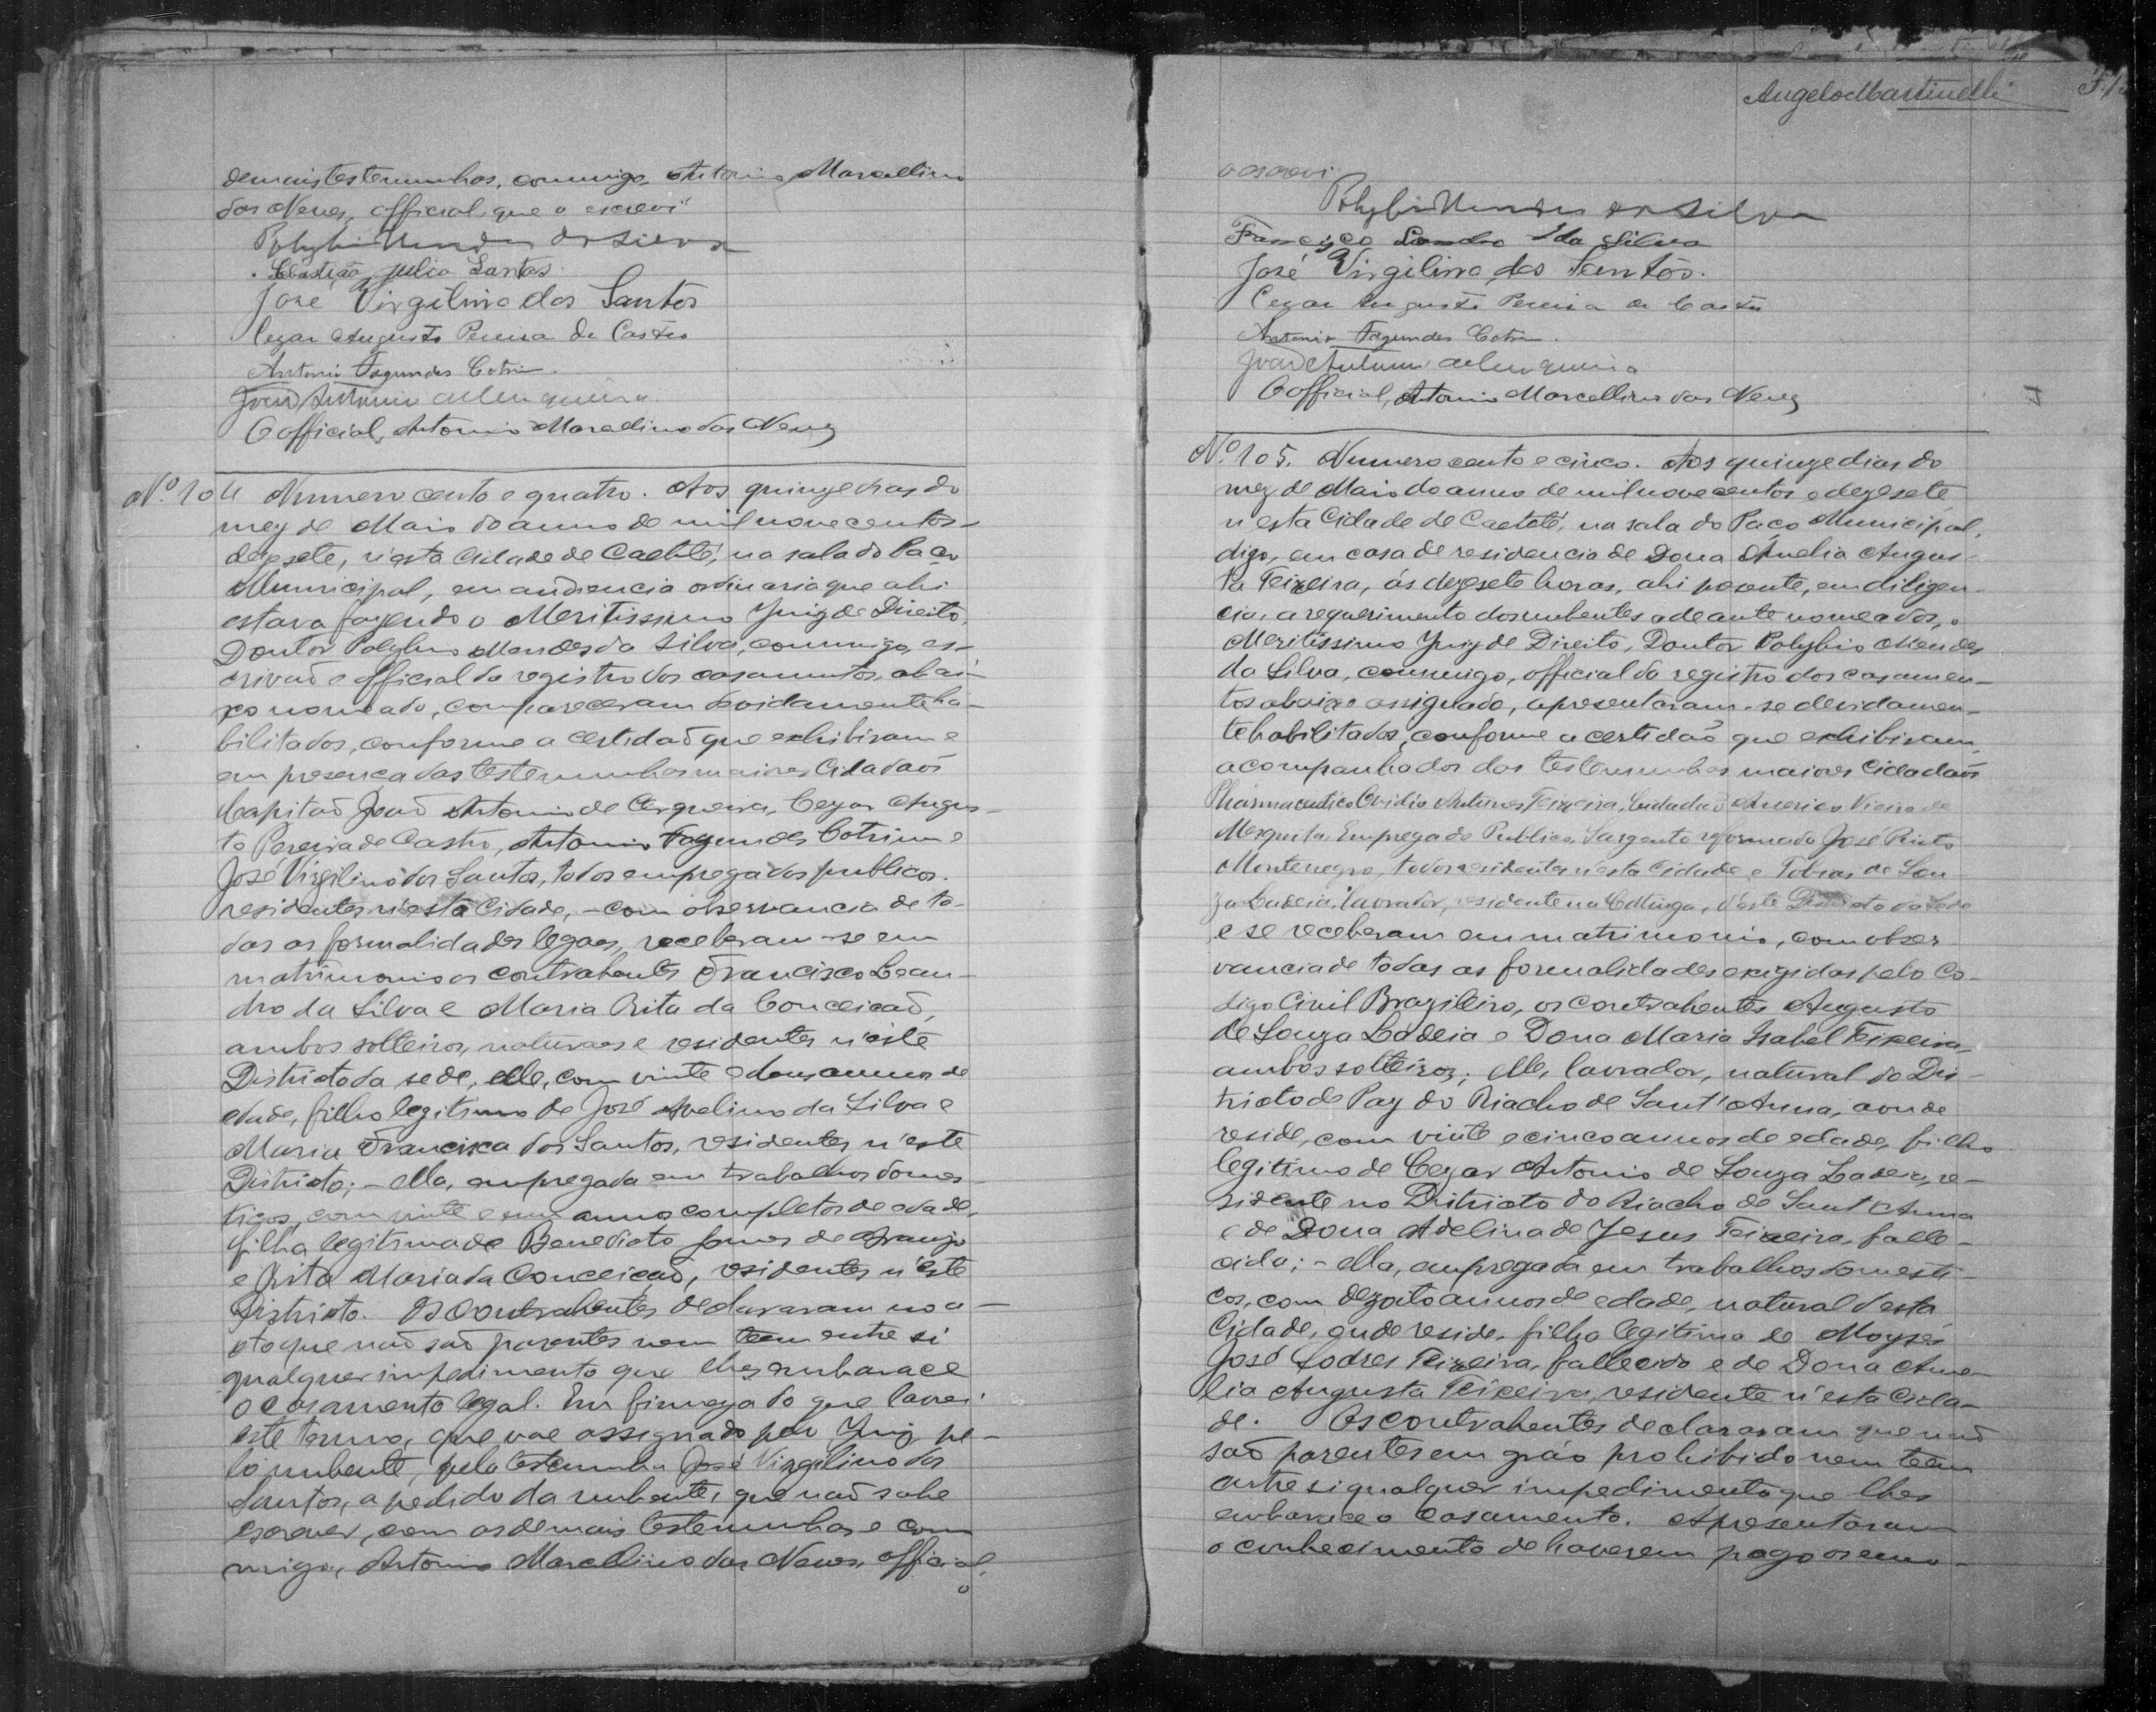 demais testemunhas, commigo, Antonio Marcellino
das Neves, official que o escrevi
Polybio Mendes da Silva
Sebastião Julio Santos
José Virgilino dos Santos
Cezar Augusto Pereira de Castro
Antonio Fagundes Cotrim.
João Antonio de Cerqueira
O official, Antonio Marcellino das Neves
Nº 104 Numero cento e quatro. Aos quinze dias do
mez de Maio do anno de mil nove centos
dezesete, n'esta Cidade de Caetité, na sala do Paço
Municipal, em audiencia ordinaria que ahi
estava fazendo o Meritissimo Juiz de Direito,
Doutor Polybio Mendes da Silva, commigo, es-
crivaõ e official do registro dos casamentos, abai-
xo nomeado, compareceram devidamente ha-
bilitados, conforme a certidaõ que exhibiram e
em presença das testemunhas maiores Cidadaõs
Capitaõ Joaõ Antonio de Cerqueira, Cezar Augus-
to Pereira de Castro, Antonio Fagundes Cotrim e
José Virgilino dos Santos, todos empregados publicos.
residentes n'esta Cidade, - com observancia de to-
das as formalidades legaes, receberam-se em
matrimonio os contrahentes Francisco Lean-
dro da Silva e Maria Rita da Conceicaõ,
ambos solteiros, naturaes e residentes n'este
Districto da sede, elle, com vinte e dous annos de
edade, filho legitimo de José Avelino da Silva e
Maria Francisca dos Santos, residentes n'este
Districto; - ella, empregada em trabalhos domes-
ticos, com vinte e um annos completos de edade,
filha legitima de Benedicto Gomes de Araujo
e Rita Maria da Conceiçaõ, residentes n'este
Districto. Os Contrahentes declararam no a-
cto que naõ saõ parentes nem teem entre si
qualquer impedimento que lhes embarace
o casamento legal. Em firmeza do que lavrei
este termo, que vae assignado pelo Juiz, pe-
lo nubente, pela testemunha José Virgilino dos
Santos, a pedido da nubente, que naõ sabe
escrever, com as demais testemunhas e com
migo, Antonio Marcellino das Neves, official,
o
Angelo Martinelli
o escrevi
Polybio Mendes da Silva
Francisco Leandro da Silva
José Virgilino dos Santos.
Cezar Augusto Pereira de Castro
Antonio Fagundes Cotrim.
João Antonio de Cerqueira
O official, Antonio Marcellino das Neves
Nº 105. Numero cento e cinco. Aos quinze dias do
mez de Maio do anno de mil nove centos e dezesete,
n'esta Cidade de Caetité, na sala do Paço Municipal,
digo, em casa de residencia de Dona Amelia Augus-
ta Teixeira, ás dezesete horas, ahi presente, em diligen-
cia, a requerimento dos nubentes adeante nomeados, o
Meritissimo Juiz de Direito, Doutor Polybio Mendes
da Silva, commigo, official do registro dos casamen-
tos abaixo assignado, apresentaram-se devidamen-
te habilitados, conforme a certidaõ que exhibiram,
acompanhados das testemunhas maiores Cidadaõs
Pharmaceutico Ovidio Antunes Teixeira, Cidadaõ Americo Vieira de
Mesquita, Empregado Publico, Sargento reformado José Pinto
Montenegro, todos residentes n'esta Cidade e Tobias de Sou-
za Ladeia, lavrador, residente na Catinga, d'este Districto da Sede
e se receberam em matrimonio, com obser
vancia de todas as formalidades exigidas pelo Co-
digo Civil Brazileiro, os contrahentes Augusto
de Souza Ladeia e Dona Maria Izabel Teixeira,
ambos solteiros; elle, lavrador, natural do Dis-
tricto de Paz do Riacho de Sant'Anna, aonde
reside, com vinte e cinco annos de edade, filho
legitimo de Cezar Antonio de Souza Ladeia, re-
sidente no Districto do Riacho de Sant'Anna
e de Dona Adelina de Jesus Teixeira, falle-
cida; - ella, empregada em trabalhos domesti-
cos, com dezoito annos de edade, natural d'esta
Cidade, onde reside, filha legitima de Moysés
José Lodres Teixeira, fallecido e de Dona Ame-
lia Augusta Teixeira, residente n'esta Cida-
de. Os contrahentes declararam que naõ
saõ parentes em gráo prohibido nem teem
entre si qualquer impedimento que lhes
embarace o casamento. Apresentaram
o conhecimento de haverem pago os emo-